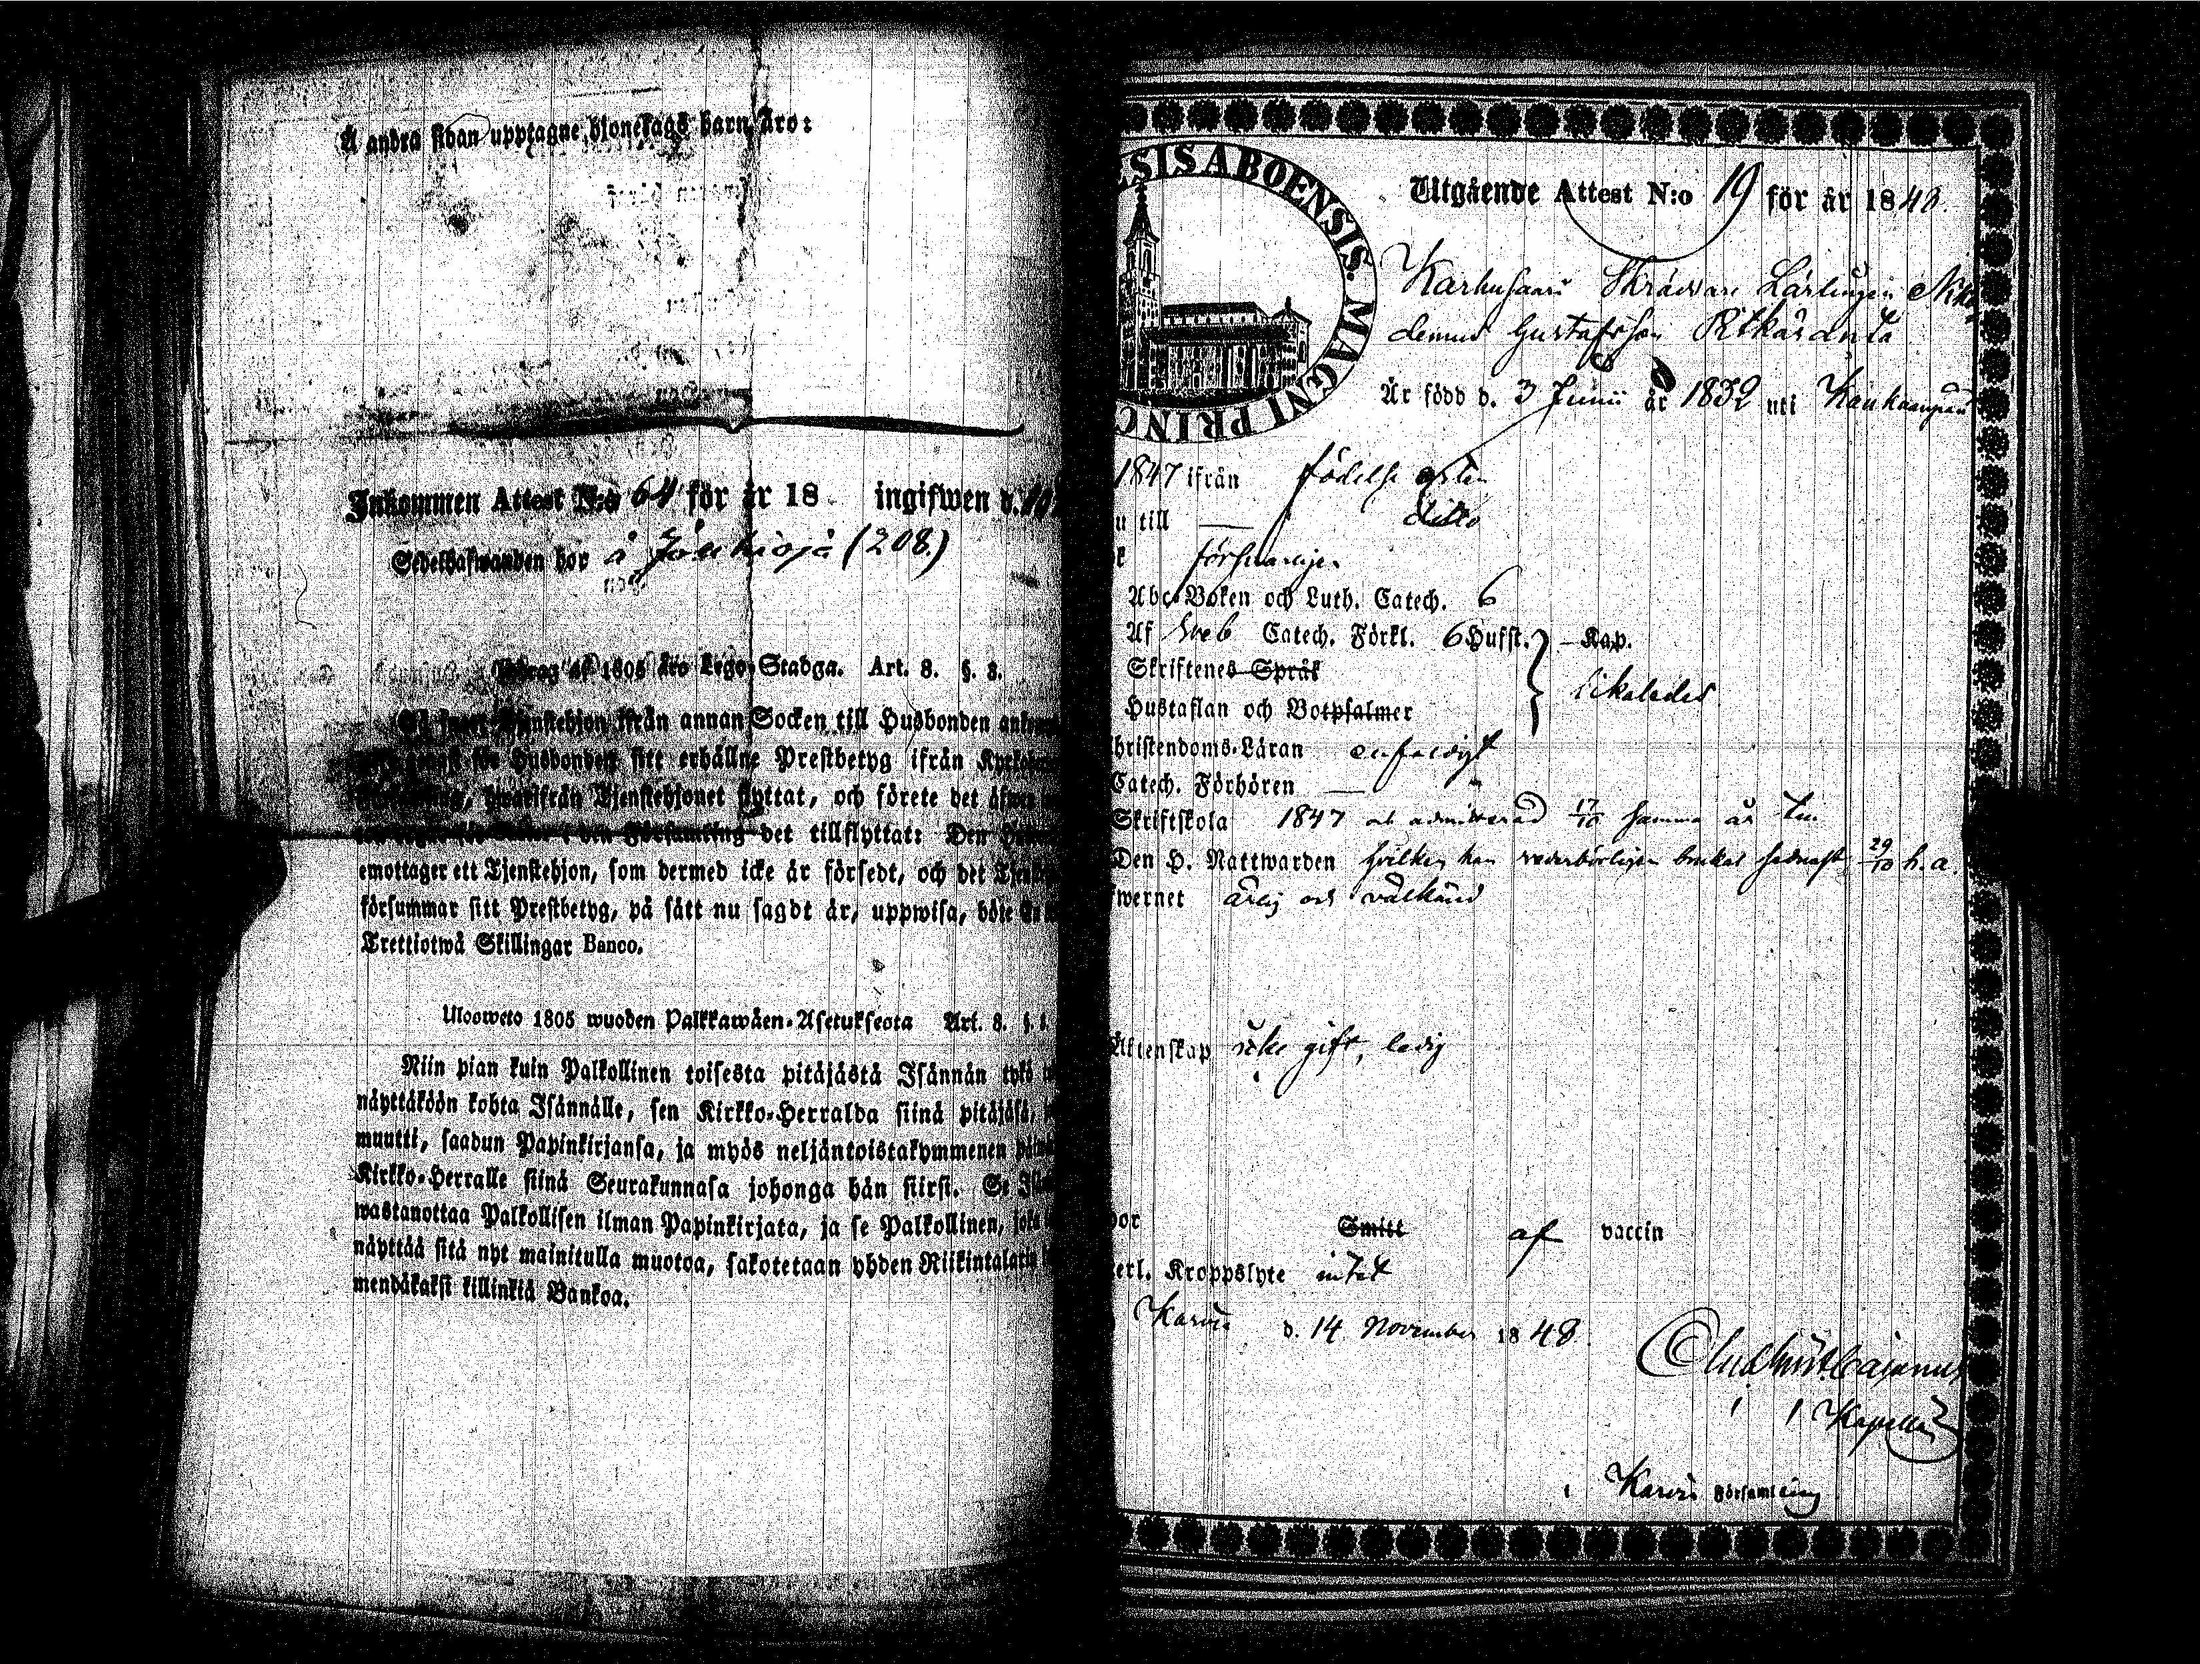 Å andra sidan upptagne hjonelags barn äro:
Inkommen Attest N:o 64 för år 18 ingifwen d. 10
Sedelhafwanden bor å Jouhisjä (208.)
Utdrag af 1805 års Lego-Stadga. Art. 8. §. 8.
Så snart Tjenstehjon ifrån annan Socken till Husbonden
Husbonden sitt erhållne Prestbetyg ifrån
hwarifrån Tjenstehjonet flyttat, och förete det
i den Församling det tillflyttat: Den
emottager ett Tjenstehjon, som dermed icke är försedt, och det
försummar sitt Prestbetyg, på sätt nu sagdt är, uppwisa, böte
Trettiotwå Skillingar Banco.
Ulosweto 1805 wuoden Palkkawäen-Asetuksesta Art. 8. §.
Niin pian kuin Palkollinen toisesta pitäjästä Isännän tykö
näyttäköön kohta Isännälle, sen Kirkko-Herralda siinä pitäjäsä,
muutti, saadun Papinkirjansa, ja myös neljäntoistakymmenen
Kirkko-Herralle siinä Seurakunnasa johonga hän siirsi. Se
wastanottaa Palkollisen ilman Papinkirjata, ja se Palkollinen, joka
näyttää sitä nyt mainitulla muotoa, sakotetaan yhden Riikintalarin
mendäkaksi killinkiä Bankoa.
ESIS ABOENSIS. MAGNI PRINC
Utgående Attest N:o 19 för år 1848.
Karhusaari Skräddare Lärlingen Niko
demus Gustafsson Pitkäranta
Är född d. 3 Junii år 1832 uti Kankaanpää
1847 ifrån födelse orten
u till — ditto
försvarligen
Abc-Boken och Luth. Catech. 6
Af Sveb Catech. Förkl. 6 Hufst. — Kap.
Skriftenes Språk
likaledes
Hustaflan och Botpsalmer
hristendoms-Läran enfaldigt
Catech. Förhören — "
Skriftskola 1847 och admitterad 17/10 samma år till
Den H. Nattwarden hvilken han vederbörligen brukat sednast 29/10 h. a.
fwernet ärlig och välkänd
Äktenskap icke gift, ledig
por Smitt af vaccin
erl. Kroppslyte intet
Karvia d. 14 November 1848.
Cajanus
Kapellan
i Karvia Församling